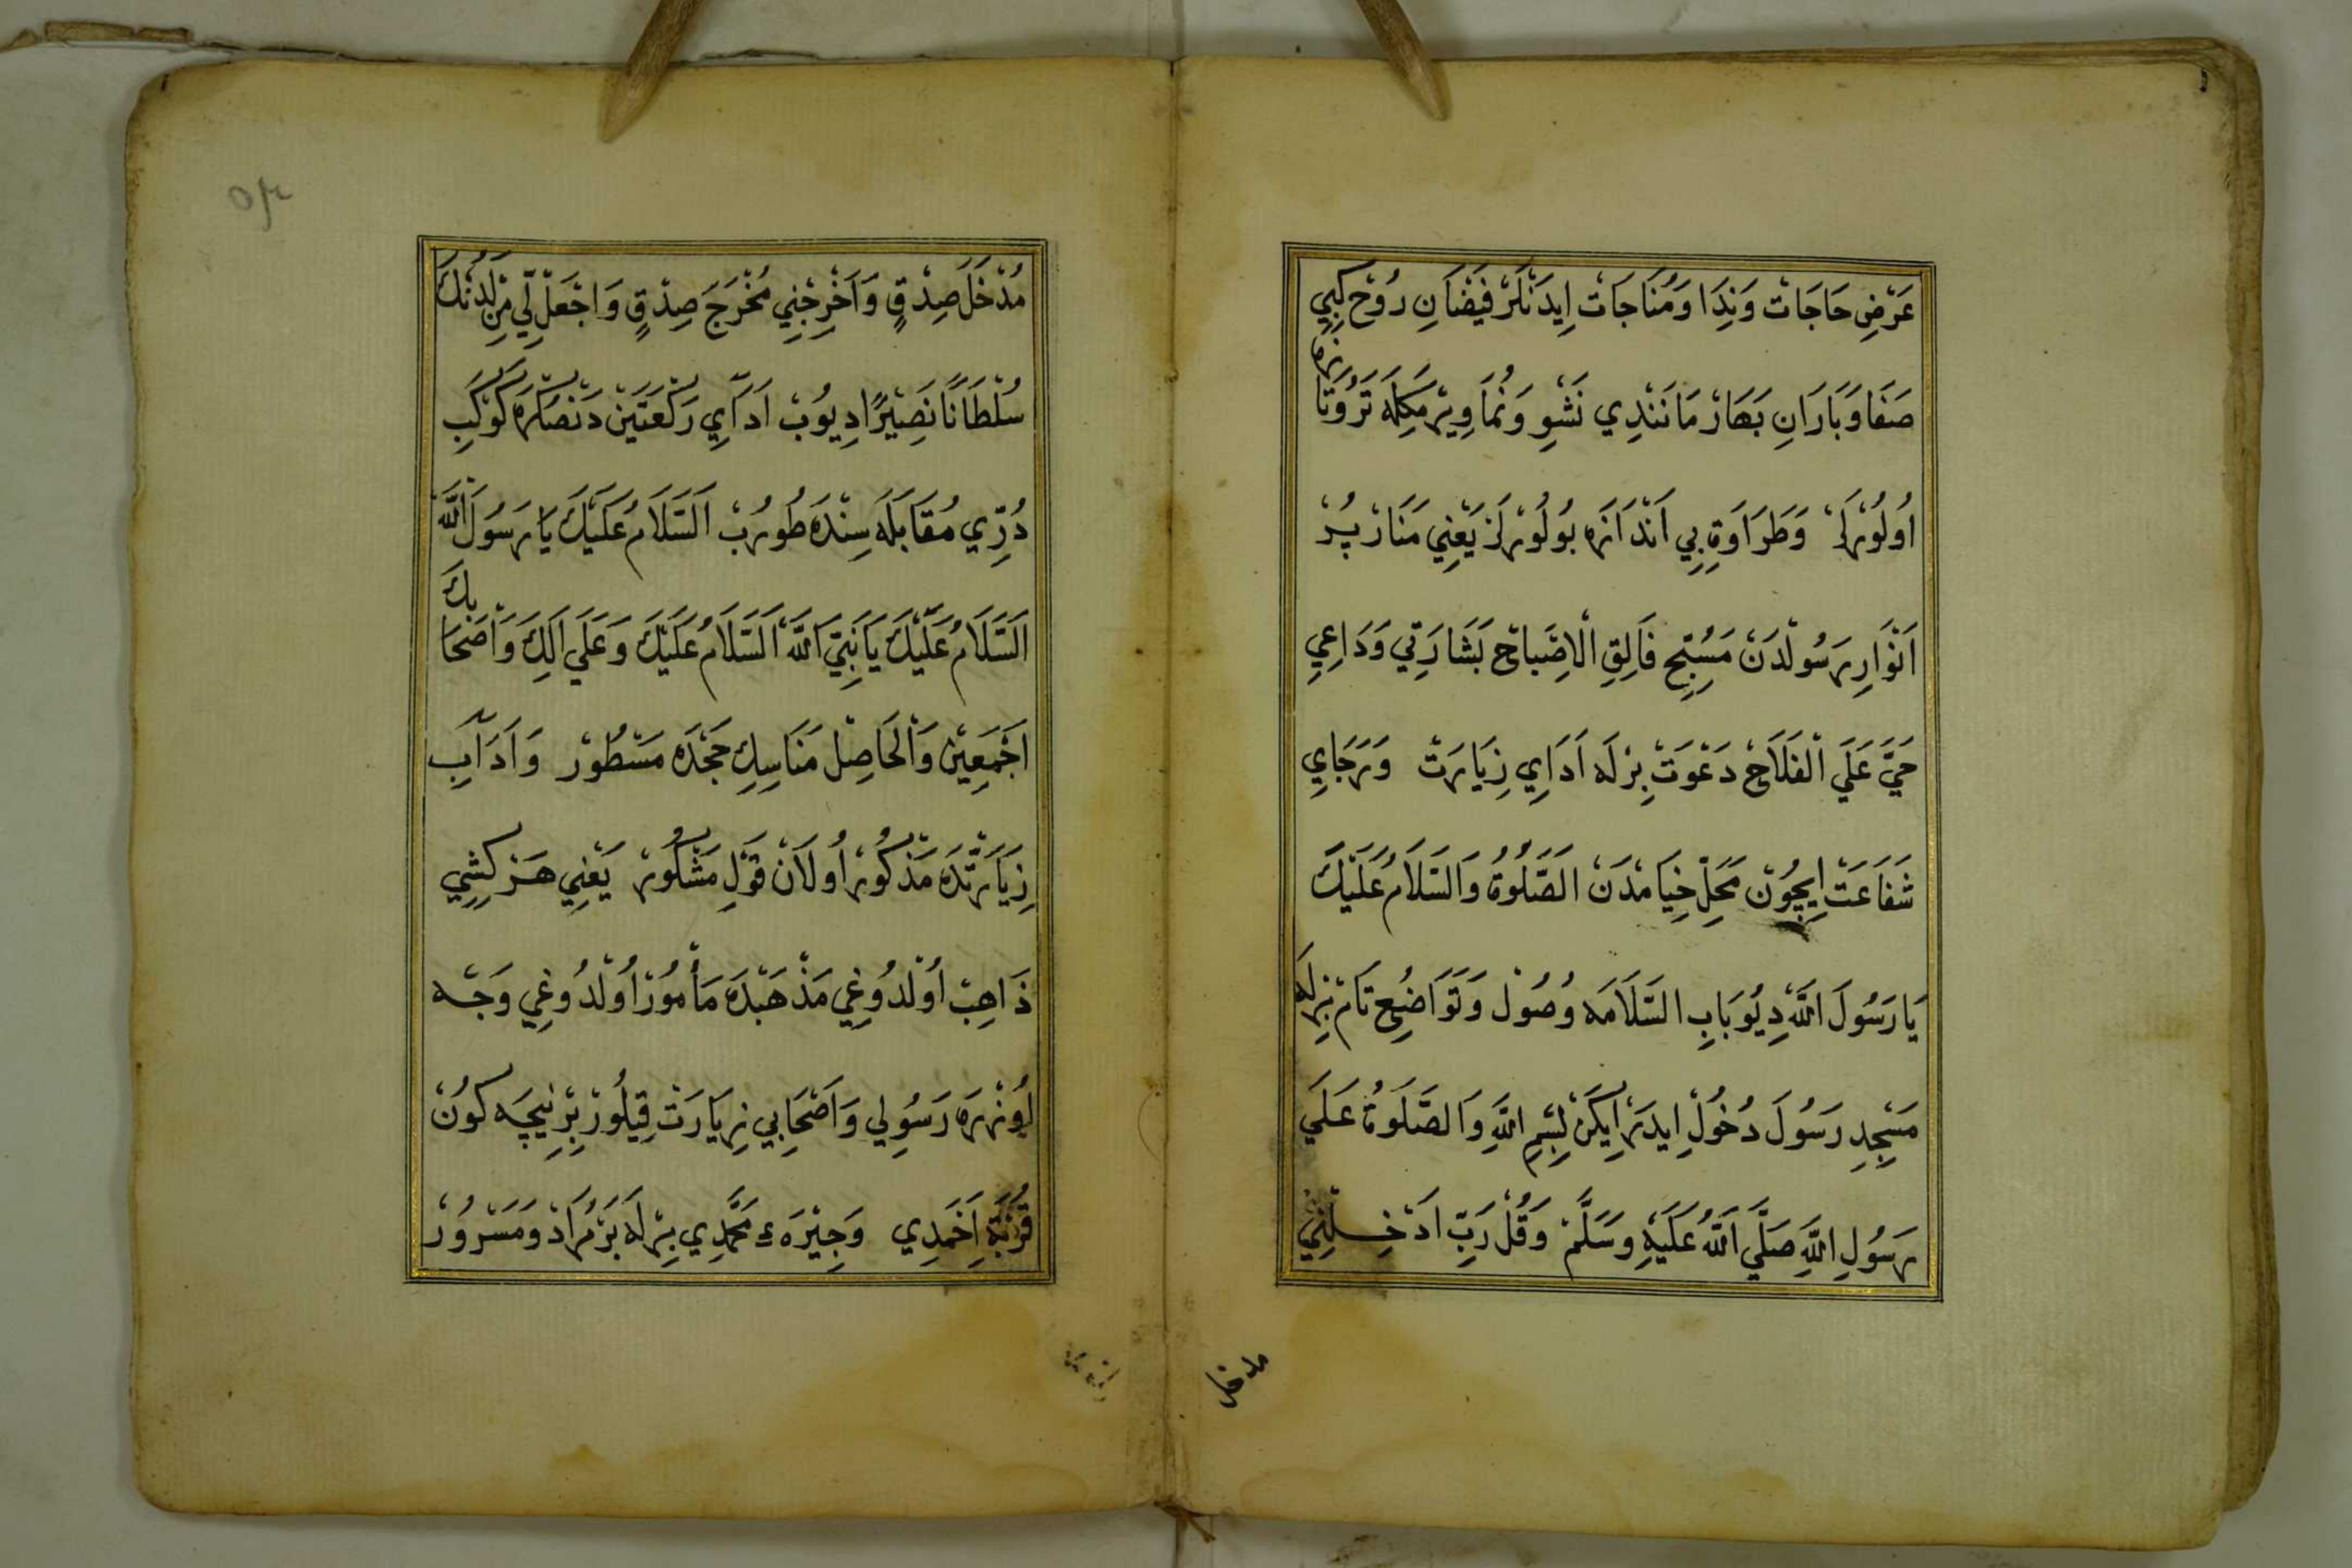 عَرْضِ حَاجَاتْ وَنِدَا وَمُنَاجَاتْ اِيدَنْلَرْ فَيَضَانِ رُوحْ كِبِي
صَفَا وَبَارَانِ بَهَارْ مَانَنْدِي نَشْوِ وَنُمَا وِيرْمَكِلَه تَرُوتَازَه
اُولُورْلَرْ وَطَرَاوَةِ بِي اَنْدَازَه بُولُورْلَرْ يَعْنِي مَنَارْ پُرْ
اَنْوَارِ رَسُولْدَنْ مُسَبِّحِ فَالِقِ الْاِصْبَاحْ بَشَارَتِي وَدَاعِي
حَيَّ عَلَي الْفَلَاحْ دَعْوَتْ بِرْلَه اَدَايِ زِيَارَتْ وَرَجَايِ
شَفَاعَتْ اِيچُونْ مَحَلِّ خِيَامْدَنْ الصَّلٰوةُ وَالسَّلَامُ عَلَيْكَ
يَا رَسُولَ اللّٰهْ دِيُو بَابِ السَّلَامَه وُصُولْ وَتَوَاضُعِ تَامْ بِرْلَه
مَسْجِدِ رَسُولَ دُخُولْ اِيدَرْ اِيكَنْ بِسْمِ اللّٰهِ وَالصَّلَوةُ عَلَي
رَسُولِ اللّٰهِ صَلَّي اللّٰهُ عَلَيْهِ وَسَلَّمْ وَقُلْ رَبِّ اَدْخِلْنِي
مدخل
مُدْخَلَ صِدْقٍ وَاَخْرِجْنِي مُخْرَجَ صِدْقٍ وَاجْعَلْ لِّي مِنْ لَدُنْكَ
سُلْطَانًا نَصِيْرًا دِيُوبْ اَدَآيِ رَكْعَتَيْنْ دَنْصُكْرَه كَوْكَبِ
دُرِّي مُقَابَلَه سِنْدَه طُورُبْ اَلسَّلَامُ عَلَيْكَ يَا رَسُولَ اللّٰهْ
اَلسَّلَامُ عَلَيْكَ يَا نَبِيَّ اللّٰهْ اَلسَّلَامُ عَلَيْكَ وَعَلَي اٰلِكَ وَاَصْحَابِكَ
اَجْمَعِيْنْ وَالْحَاصِلْ مَنَاسِكِ حَجْدَه مَسْطُورْ وَاَدَآبِ
زِيَارَتْدَه مَذْكُورْ اُولَانْ قَوْلِ مَشْكُورْ يَعْنِي هَرْ كِشِي
ذَاهِبْ اُولْدُوغِي مَذْهَبْدَه مَأْمُورْ اُولْدُوغِي وَجْه
اُوزْرَه رَسُولِي وَاَصْحَابِي زِيَارَتْ قِيلُورْ بِرْ نِيچَه كُونْ
قُرْبَةِ اَحْمَدِي وَجِيْرَهءِ مُحَمَّدِي بِرْلَه بَرْمُرَادْ وَمَسْرُورْ